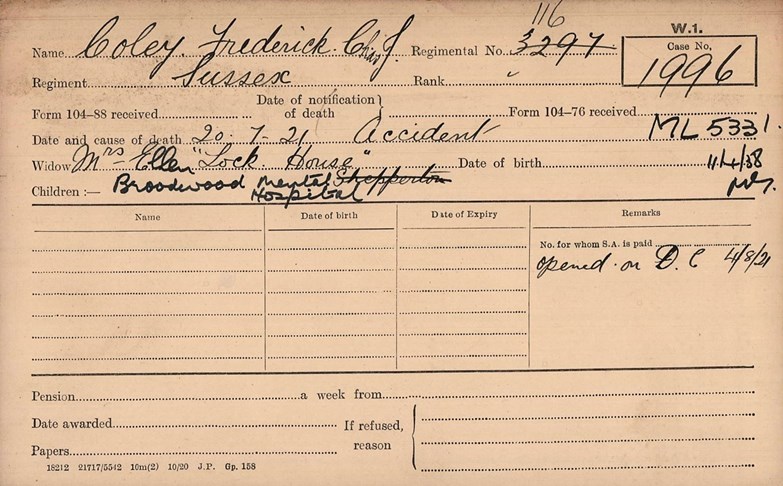 116
W.1.
Name Coley. Frederick. Chas J. Regimental No. 3297 Case No.
1996
Regiment Sussex Rank "
Date of notification of death
Form 104–88 received Form 104–76 received
ML 5331.
Date and cause of death 20·7·21 Accident
Widow Mrs Ellen "Lock House" Date of birth 11/4/38
Children :— Broodwood Mental Shepperton
Hospital
Name Date of birth Date of Expiry Remarks
No. for whom S.A. is paid
opened on D.C 4/8/21
Pension a week from
Date awarded If refused,
reason
Papers
18212 21717/5542 10m(2) 10/20 J.P. Gp. 158